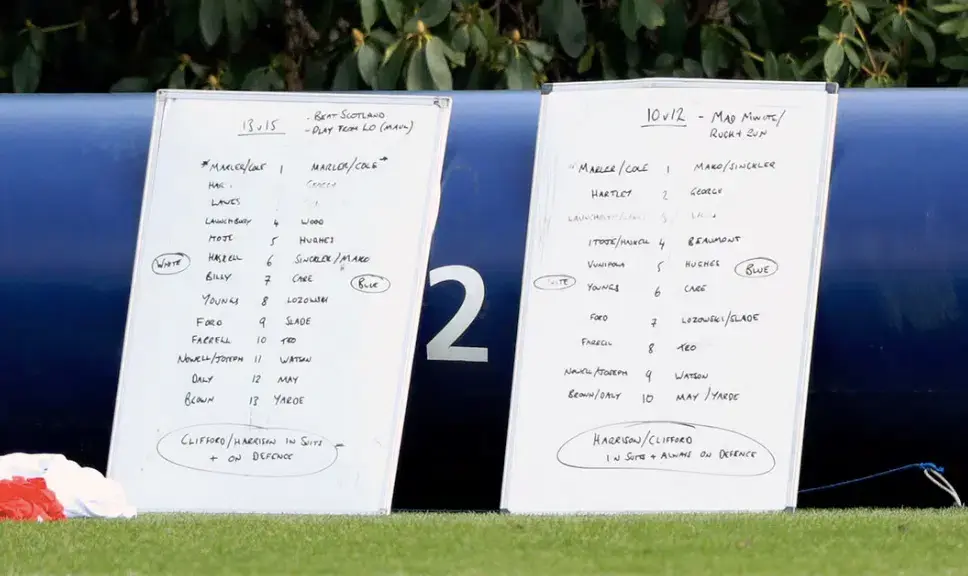 13 v 15 - BEAT SCOTLAND
- PLAY FROM LO (MAUL)
* MARLER/COLE 1 MARLER/COLE *
LAWES
LAUNCHBURY 4 WOOD
ITOJE 5 HUGHES
HASKELL 6 SINCKLER/MAKO
WHITE
BILLY 7 CARE
BLUE
YOUNGS 8 LOZOWSKI
FORD 9 SLADE
FARRELL 10 TEO
NOWELL/JOSEPH 11 WATSON
DALY 12 MAY
BROWN 13 YARDE
CLIFFORD/HARRISON IN SUITS
+ ON DEFENCE
2
10 v 12 - MAD MINUTE/
RUCK + RUN
MARLER/COLE 1 MAKO/SINCKLER
HARTLEY 2 GEORGE
ITOJE/HASKELL 4 BEAUMONT
VUNIPOLA 5 HUGHES
BLUE
WHITE
YOUNGS 6 CARE
FORD 7 LOZOWSKI/SLADE
FARRELL 8 TEO
NOWELL/JOSEPH 9 WATSON
BROWN/DALY 10 MAY/YARDE
HARRISON/CLIFFORD
IN SUITS + ALWAYS ON DEFENCE